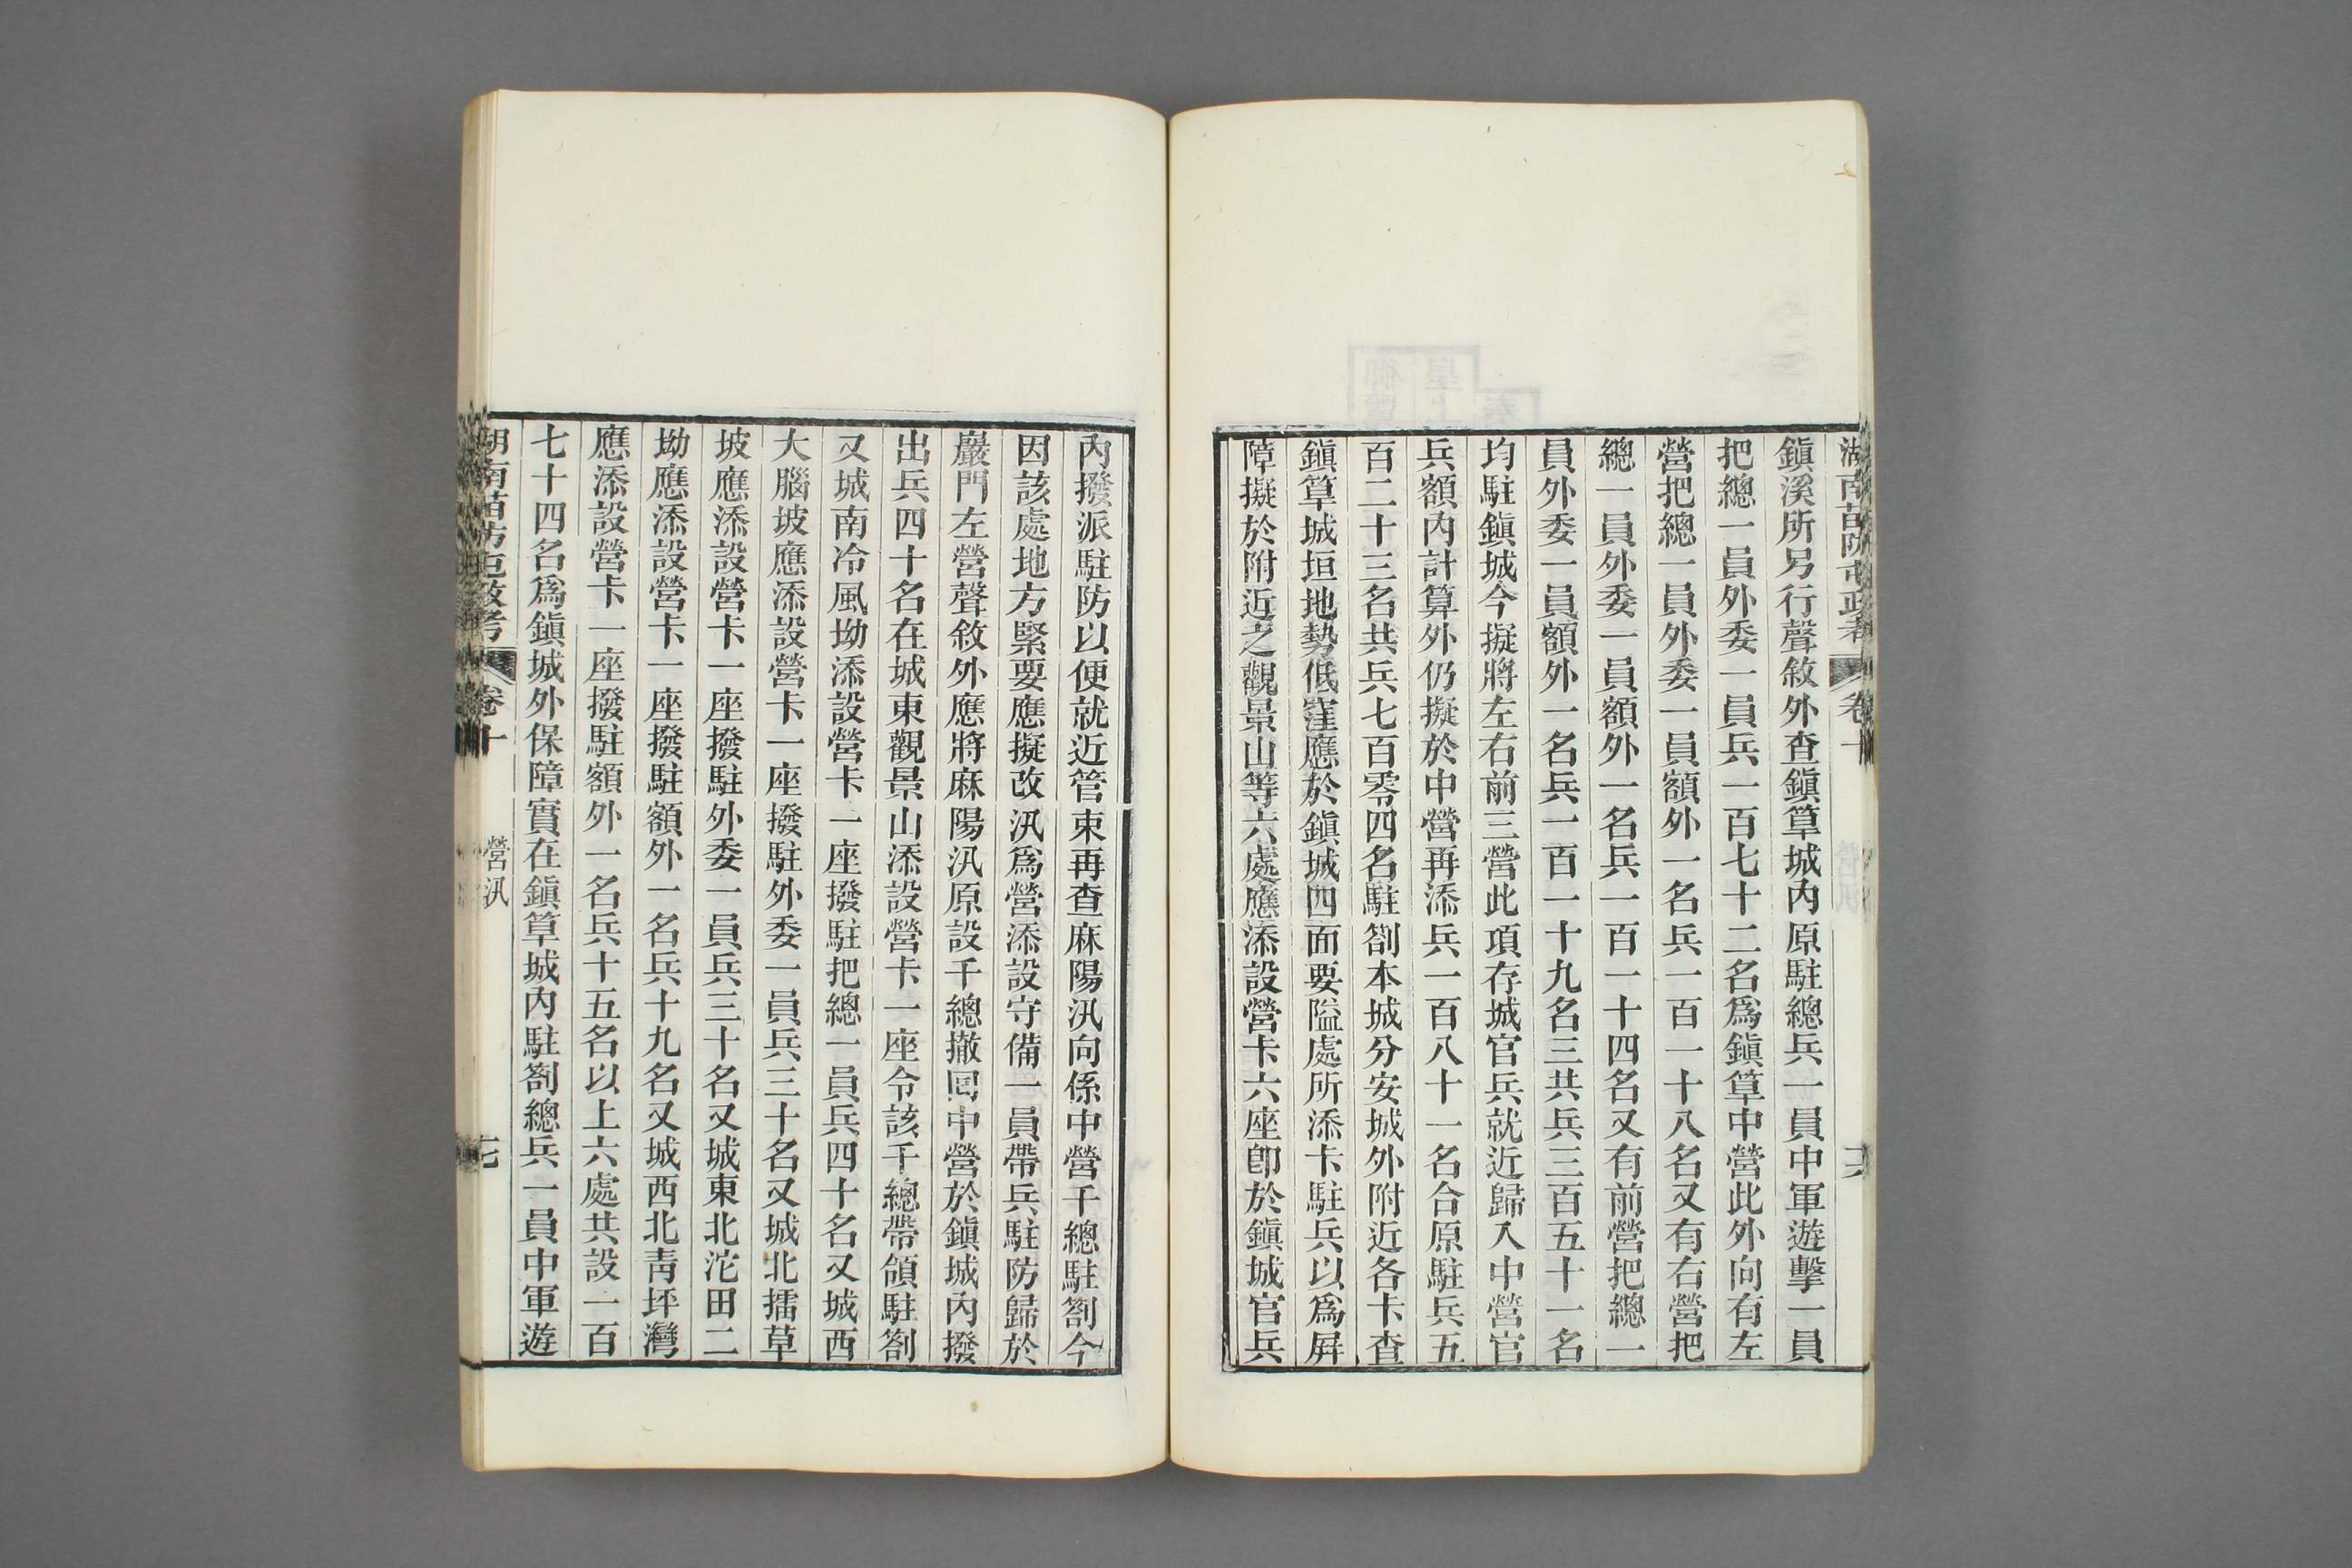 湖南苗防屯政考 卷十 十六
鎭溪所另行聲敘外查鎭筸城內原駐總兵一員中軍遊擊一員
把總一員外委一員兵一百七十二名爲鎭筸中營此外向有左
營把總一員外委一員額外一名兵一百一十八名又有右營把
總一員外委一員額外一名兵一百一十四名又有前營把總一
員外委一員額外一名兵一百一十九名三共兵三百五十一名
均駐鎭城今擬將左右前三營此項存城官兵就近歸入中營官
兵額內計算外仍擬於中營再添兵一百八十一名合原駐兵五
百二十三名共兵七百零四名駐劄本城分安城外附近各卡查
鎭筸城垣地勢低窪應於鎭城四面要隘處所添卡駐兵以爲屛
障擬於附近之觀景山等六處應添設營卡六座卽於鎭城官兵
內撥派駐防以便就近管束再查麻陽汛向係中營千總駐劄今
因該處地方緊要應擬改汛爲營添設守備一員帶兵駐防歸於
巖門左營聲敘外應將麻陽汛原設千總撤囘中營於鎭城內撥
出兵四十名在城東觀景山添設營卡一座令該千總帶領駐劄
又城南冷風坳添設營卡一座撥駐把總一員兵四十名又城西
大腦坡應添設營卡一座撥駐外委一員兵三十名又城北擂草
坡應添設營卡一座撥駐外委一員兵三十名又城東北沱田二
坳應添設營卡一座撥駐額外一名兵十九名又城西北靑坪灣
應添設營卡一座撥駐額外一名兵十五名以上六處共設一百
七十四名爲鎭城外保障實在鎭筸城內駐劄總兵一員中軍遊
湖南苗防屯政考 卷十 營汛 十七